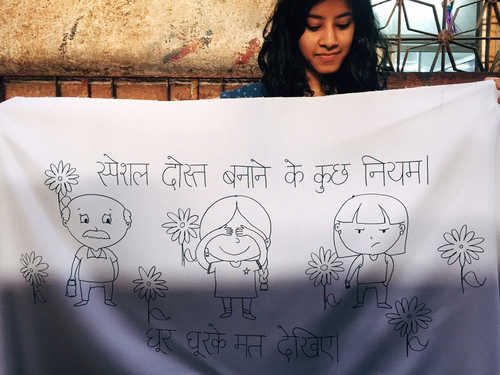 स्पेशल दोस्त बनाने के कुछ नियम।
घूर घूरके मत देखिए।